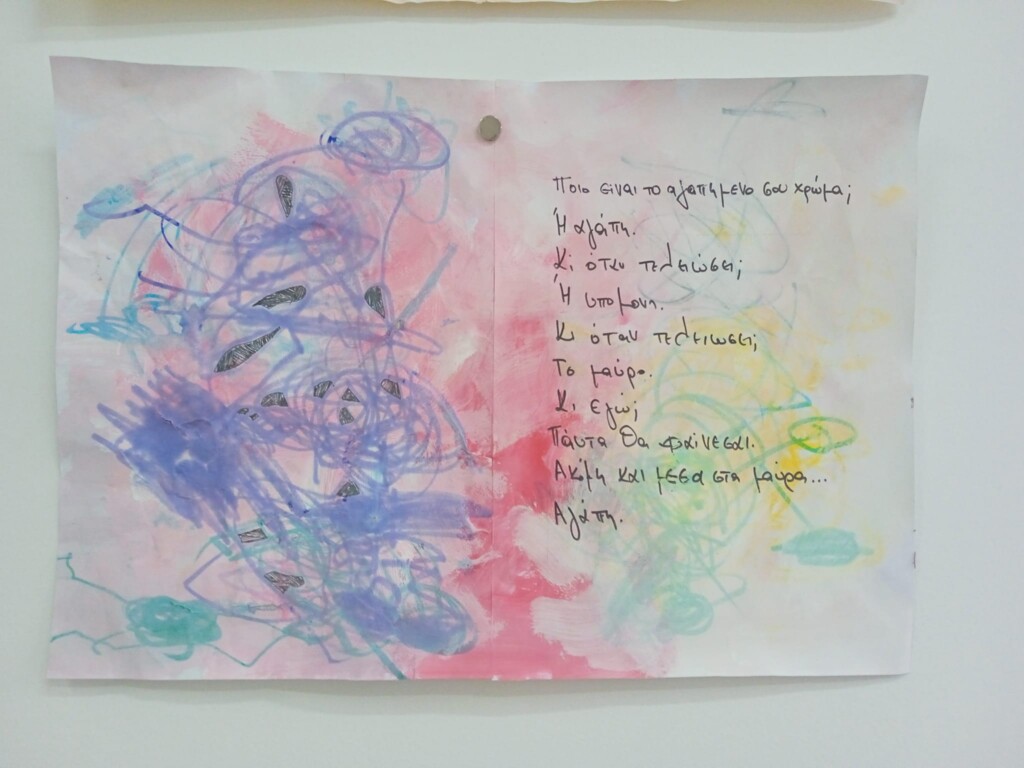 Ποιο ειναι το αγαπημενο σου χρώμα;
Ή αγάπη.
Κι όταν τελειώσει;
Ή υπομονη.
Κι όταν τελειωσει;
Το μαύρο.
Κι εγώ;
Πάντα θα φαίνεσαι.
Ακόμη και μεσα στα μαύρα...
Αγάπη.